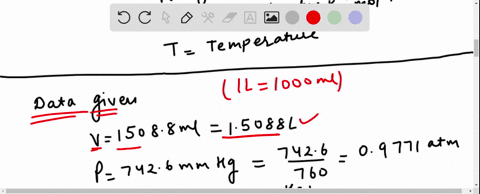 T = Temperature
(1L = 1000 ml)
Data given
V = 1508.8 ml = 1.5088 L
P = 742.6 mm Hg = 742.6 / 760 = 0.9771 atm